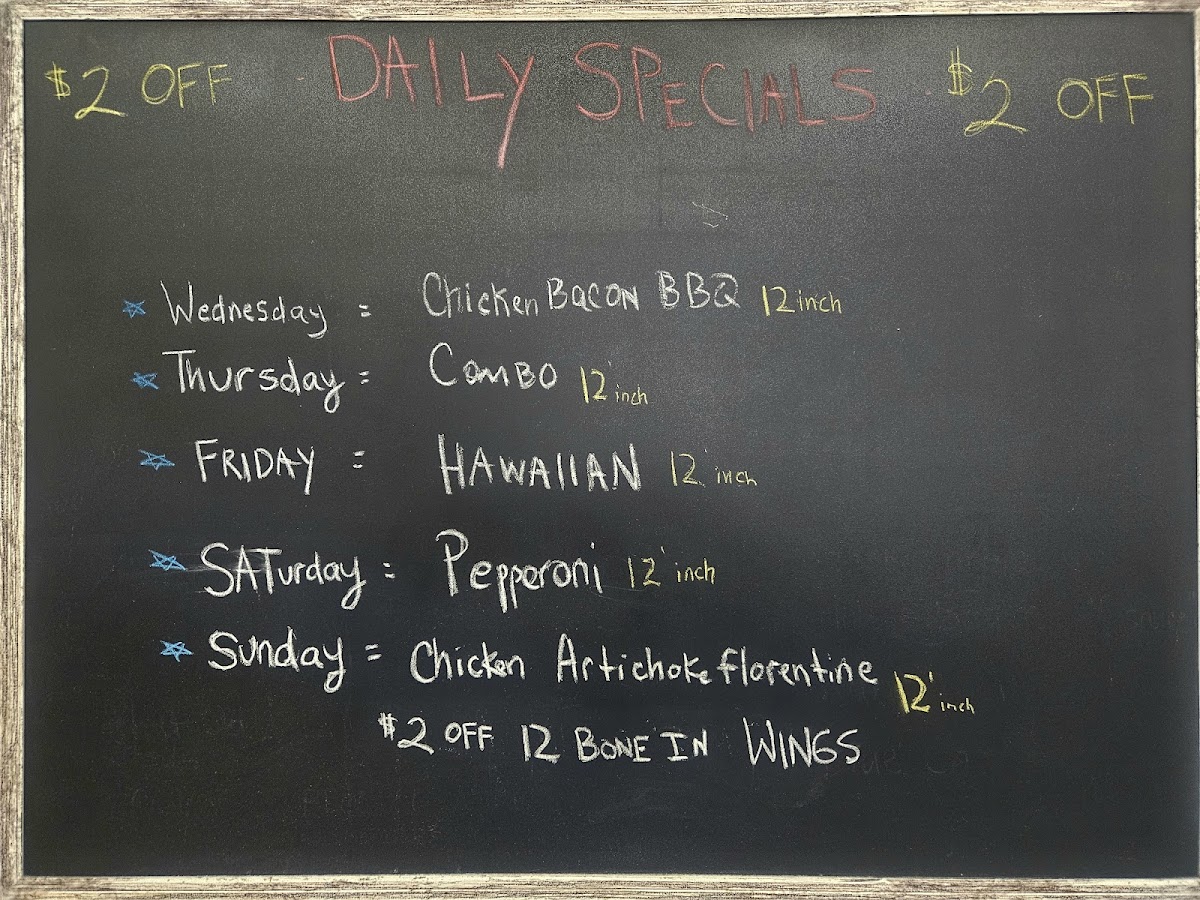 $2 OFF DAILY SPECIALS $2 OFF
Wednesday = Chicken BACON BBQ 12 inch
Thursday = COMBO 12' inch
FRIDAY = HAWAIIAN 12' inch
SATurday = Pepperoni 12' inch
Sunday = Chicken Artichoke florentine 12' inch
$2 OFF 12 BONE IN WINGS